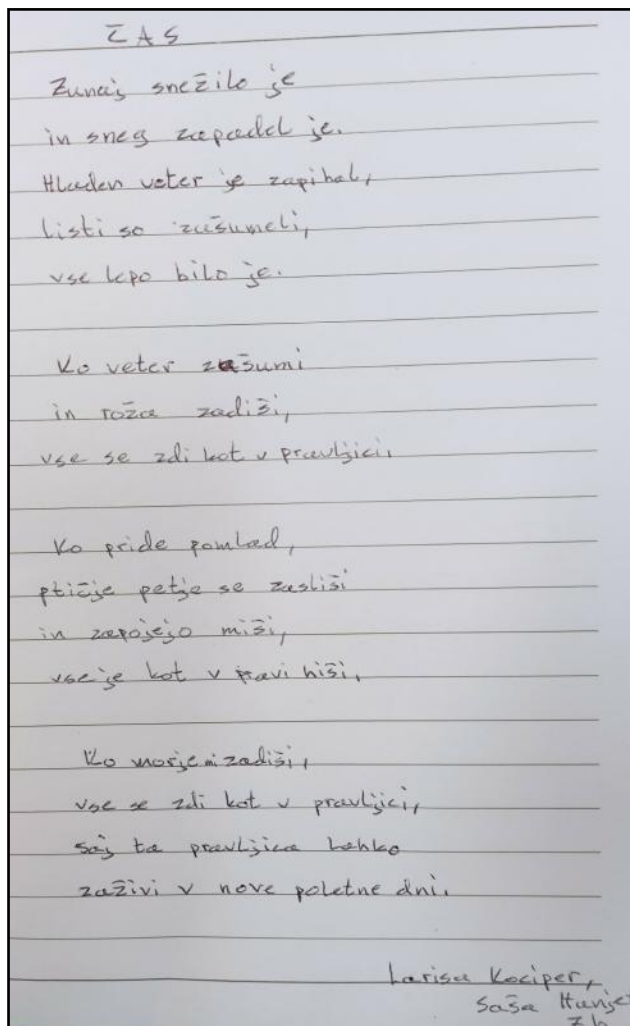 ČAS
Zunaj snežilo je
in sneg zapadel je.
Hladen veter je zapihal,
listi so zašumeli,
vse lepo bilo je.
Ko veter zašumi
in roža zadiši,
vse se zdi kot v pravljici.
Ko pride pomlad,
ptičje petje se zasliši
in zapojejo miši,
vse je kot v pravi hiši.
Ko morje zadiši,
vse se zdi kot v pravljici,
saj ta pravljica lahko
zaživi v nove poletne dni.
Larisa Kociper,
Saša
7.b